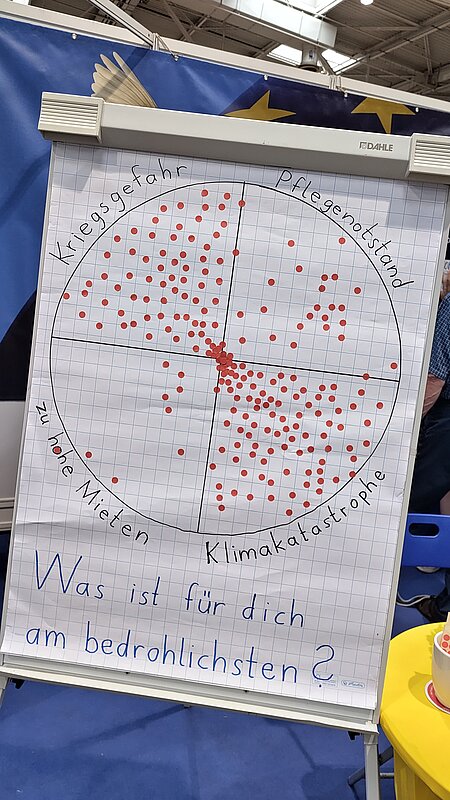 DAHLE
Kriegsgefahr
Pflegenotstand
zu hohe Mieten
Klimakatastrophe
Was ist für dich
am bedrohlichsten?